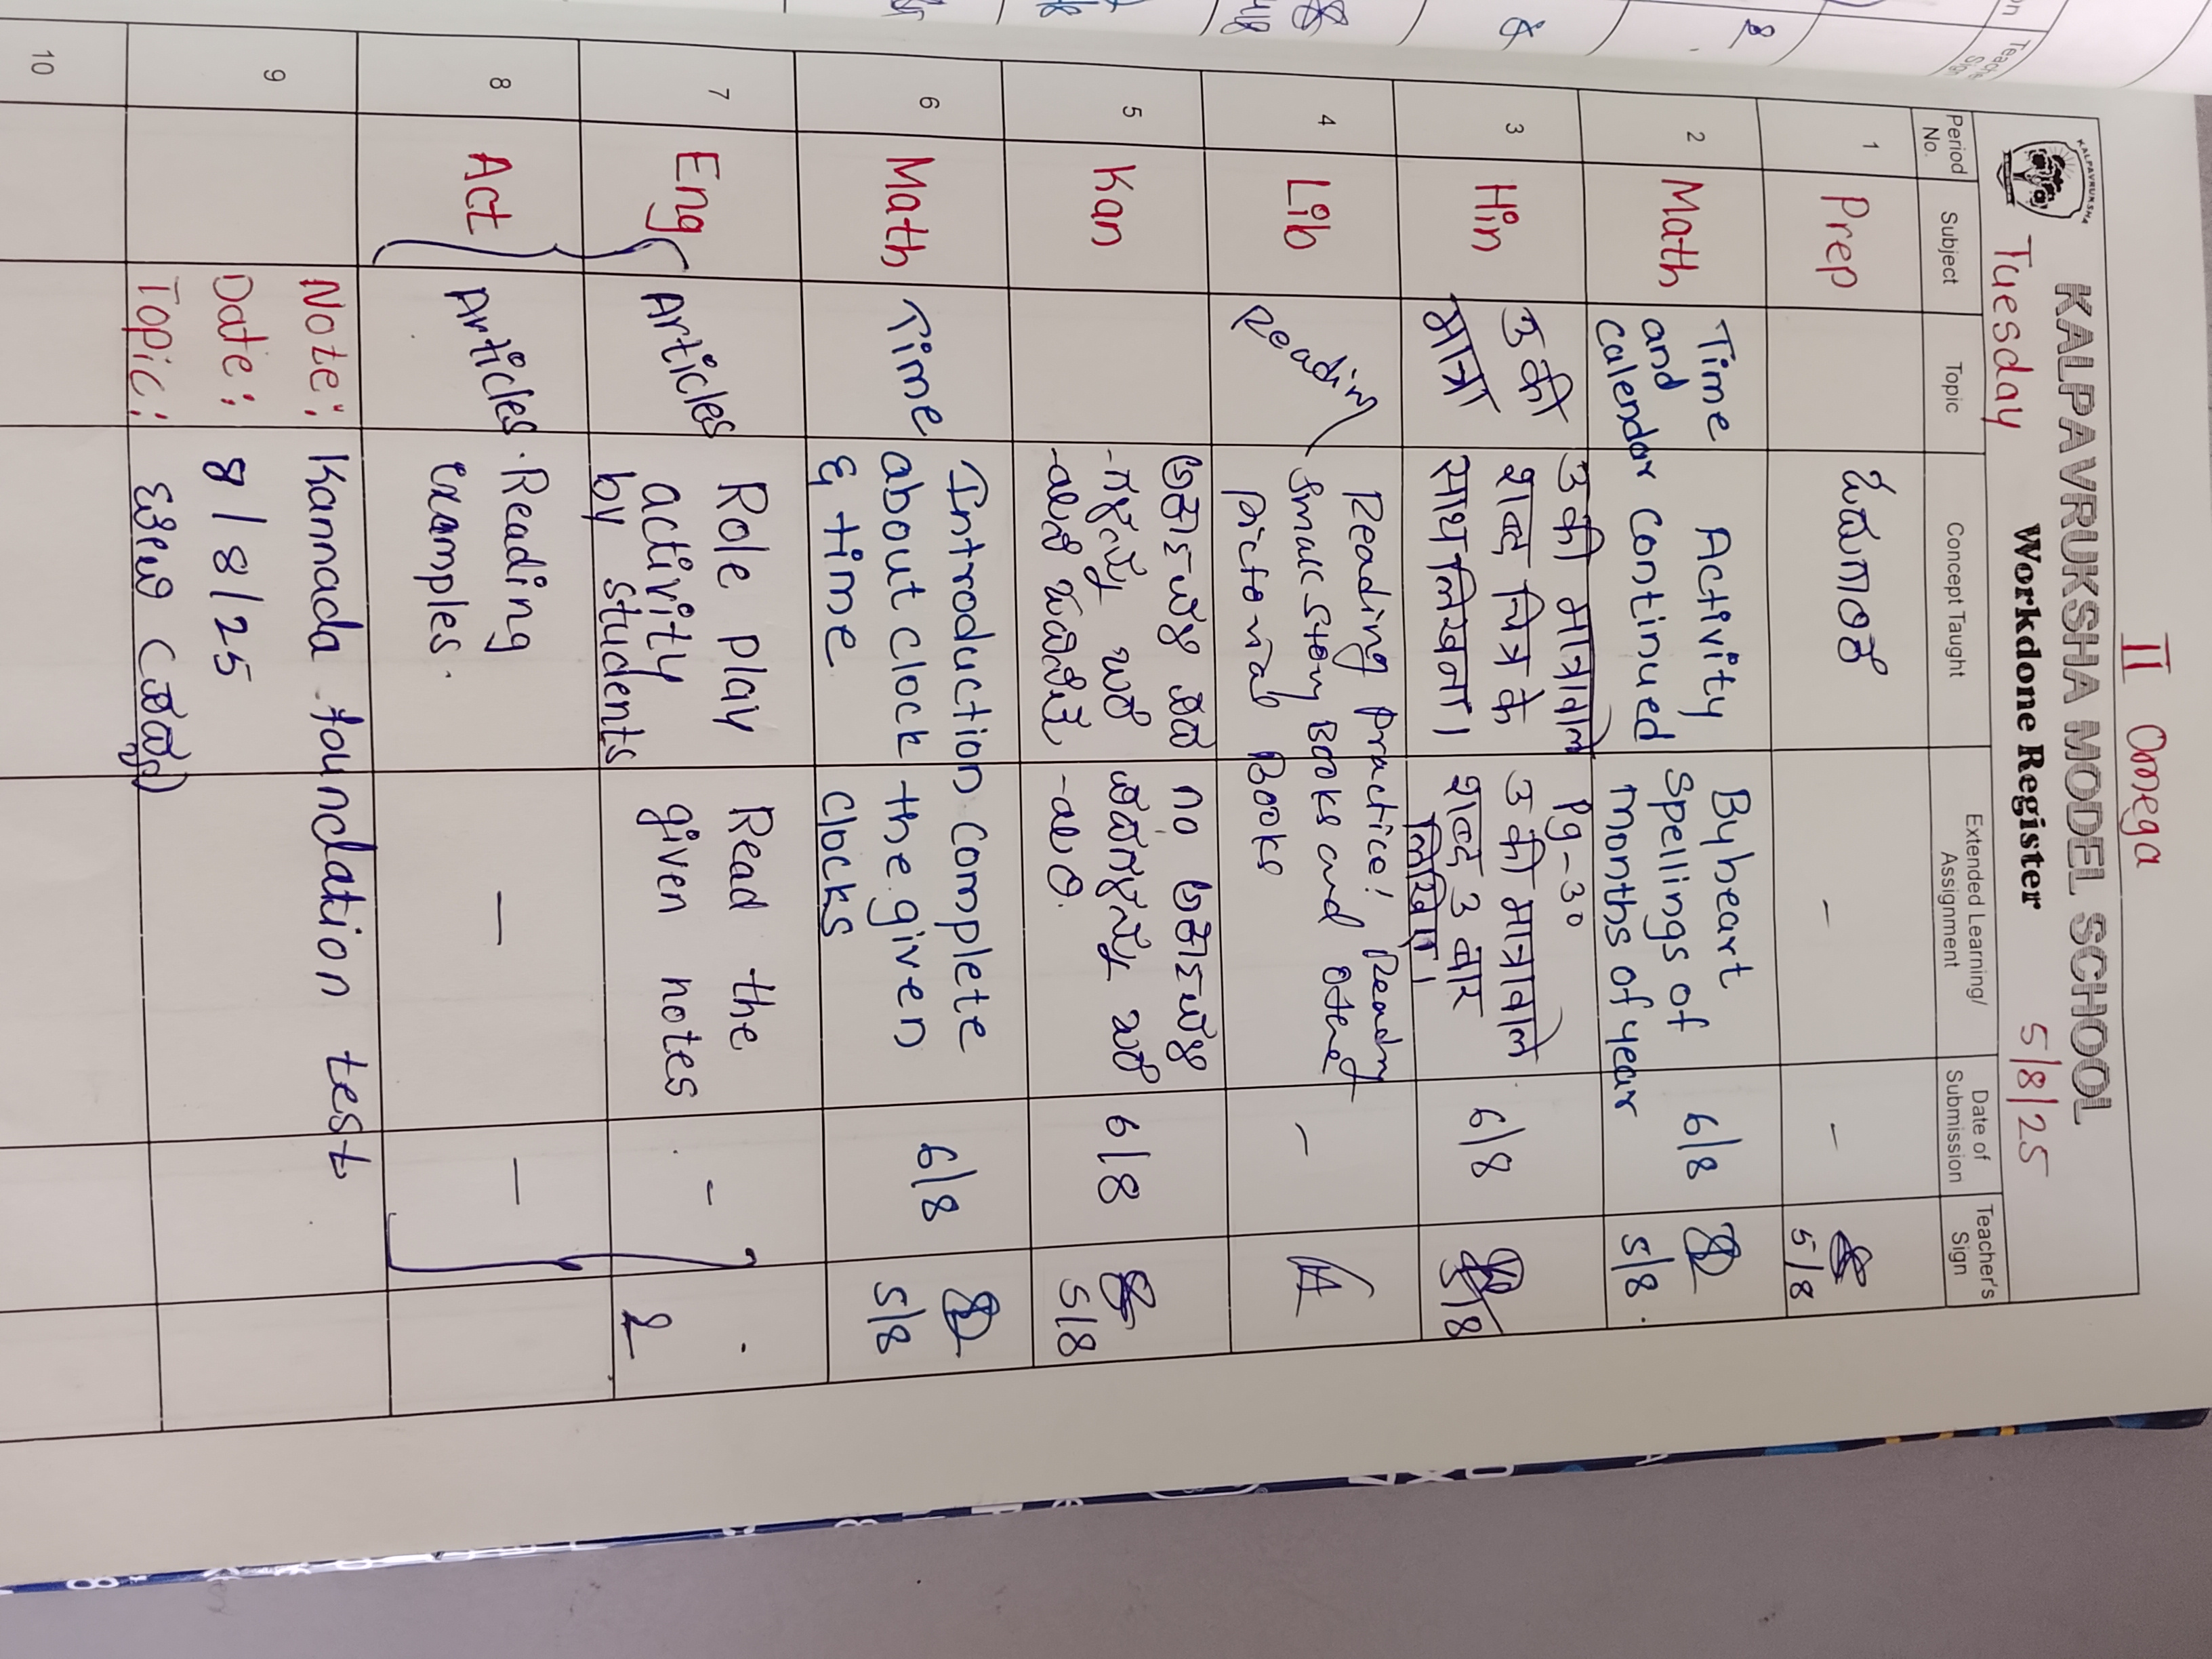 II Omega
KALPAVRUKSHA
KALPAVRUKSHA MODEL SCHOOL
Workdone Register
Tuesday
5/8/25
Period No.
Subject
Topic
Concept Taught
Extended Learning/ Assignment
Date of Submission
Teacher's Sign
1
Prep
-
-
5/8
2
Math
Time
and
Calendar
Activity
continued
Byheart
Spellings of
months of year
6/8
5/8
3
Hin
उ की
मात्रा
उ की मात्रावाले
शब्द चित्र के
साथ लिखना।
Pg-30
उ की मात्रावाले
शब्द 3 बार
लिखिए।
6/8
5/8
4
Lib
Reading
Reading Practice! Reading
small story Books and other
pictorial Books
-
5
Kan
6/8
5/8
6
Math
Time
Introduction
about clock
& time
Complete
the given
clocks
6/8
5/8
7
Eng
Articles
Role play
activity
by students
Read the
given notes
-
8
Act
Articles
Reading
examples.
—
—
9
Note: Kannada foundation test
Date: 8/8/25
Topic:
10